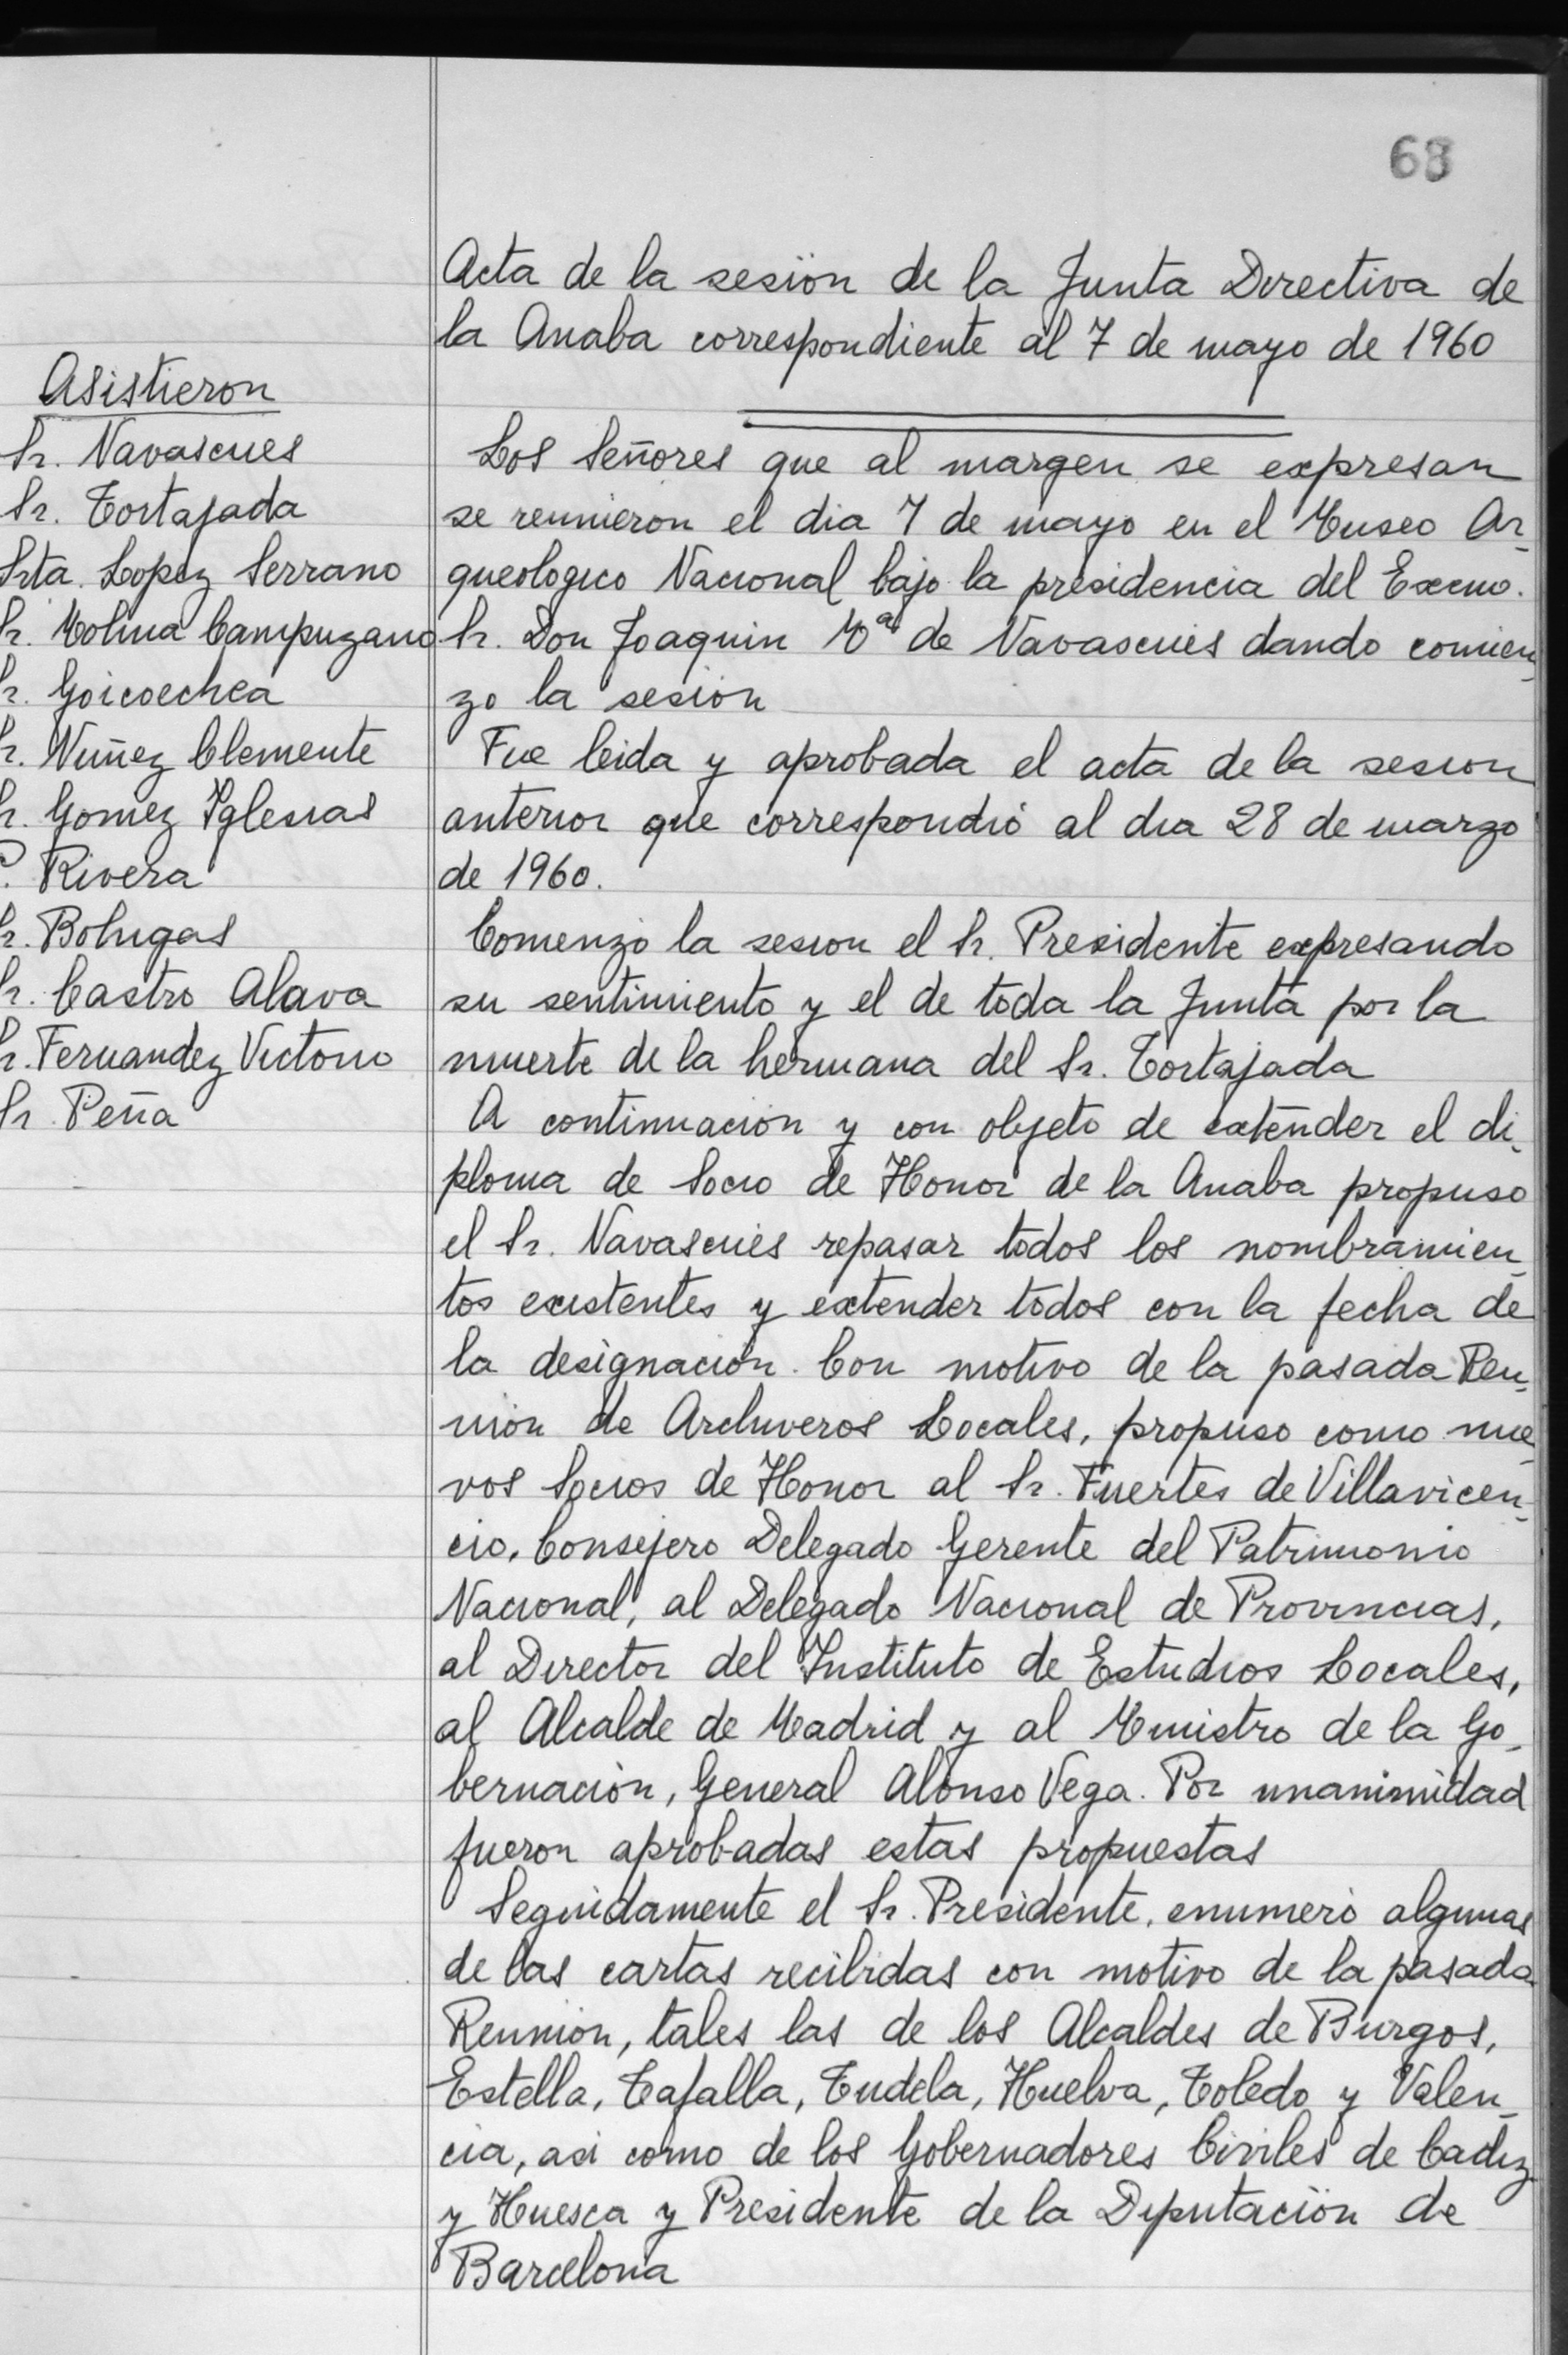 68
Acta de la sesión de la Junta Directiva de
la Anaba correspondiente al 7 de mayo de 1960
Asistieron
Sr. Navascues
Sr. Tortajada
Srta. Lopez Serrano
Sr. Molina Campuzano
Sr. Goicoechea
Sr. Nuñez Clemente
Sr. Gomez Yglesias
P. Rivera
Sr. Bohigas
Sr. Castro Alava
Sr. Fernandez Victorio
Sr. Peña
Los Señores que al margen se expresan
se reunieron el dia 7 de mayo en el Museo Ar-
queologico Nacional bajo la presidencia del Excmo.
Sr. Don Joaquin Mª de Navascués dando comien-
zo la sesión
Fue leida y aprobada el acta de la sesion
anterior que correspondió al dia 28 de marzo
de 1960.
Comenzó la sesion el Sr. Presidente expresando
su sentimiento y el de toda la Junta por la
muerte de la hermana del Sr. Tortajada
A continuación y con objeto de extender el di-
ploma de Socio de Honor de la Anaba propuso
el Sr. Navascués repasar todos los nombramien-
tos existentes y extender todos con la fecha de
la designación. Con motivo de la pasada Reu-
nión de Archiveros Locales, propuso como nue-
vos Socios de Honor al Sr. Fuertes de Villavicen-
cio, Consejero Delegado Gerente del Patrimonio
Nacional, al Delegado Nacional de Provincias,
al Director del Instituto de Estudios Locales,
al Alcalde de Madrid y al Ministro de la Go-
bernación, General Alonso Vega. Por unanimidad
fueron aprobadas estas propuestas
Seguidamente el Sr. Presidente, enumeró algunas
de las cartas recibidas con motivo de la pasada
Reunión, tales las de los Alcaldes de Burgos,
Estella, Tafalla, Tudela, Huelva, Toledo y Valen-
cia, asi como de los Gobernadores Civiles de Cadiz
y Huesca y Presidente de la Diputación de
Barcelona